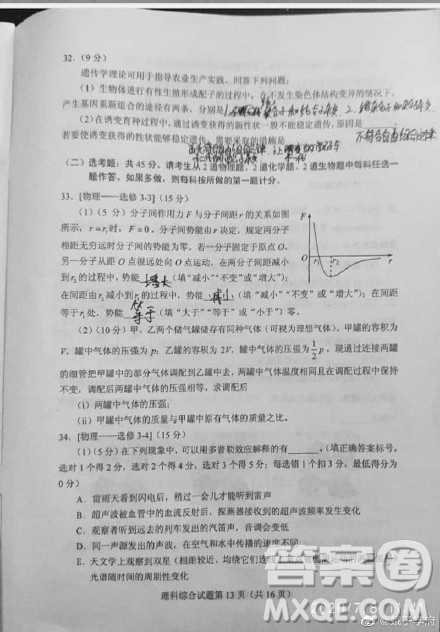 32.（9分）
遗传学理论可用于指导农业生产实践。回答下列问题：
（1）生物体进行有性生殖形成配子的过程中，在不发生染色体结构变异的情况下，
产生基因重新组合的途径有两条，分别是
（2）在诱变育种过程中，通过诱变获得的新性状一般不能稳定遗传，原因是
若要使诱变获得的性状能够稳定遗传，需要采取的措施是
（二）选考题：共45分。请考生从2道物理题、2道化学题、2道生物题中每科任选一
题作答。如果多做，则每科按所做的第一题计分。
33. [物理——选修3-3]（15分）
（1）（5分）分子间作用力F与分子间距r的关系如图
所示，r = r₁时，F = 0。分子间势能由r决定，规定两分子
相距无穷远时分子间的势能为零。若一分子固定于原点O，
另一分子从距O点很远处向O点运动，在两分子间距减小
到r₂的过程中，势能 增大（填“减小”“不变”或“增大”）；
在间距由r₂减小到r₁的过程中，势能 减小（填“减小”“不变”或“增大”）；在间距
等于r₁处，势能 等于（填“大于”“等于”或“小于”）零。
F
O
r₁
r₂
r
（2）（10分）甲、乙两个储气罐储存有同种气体（可视为理想气体）。甲罐的容积为
V，罐中气体的压强为p；乙罐的容积为2V，罐中气体的压强为1/2 p。现通过连接两罐
的细管把甲罐中的部分气体调配到乙罐中去，两罐中气体温度相同且在调配过程中保持
不变，调配后两罐中气体的压强相等。求调配后
（i）两罐中气体的压强；
（ii）甲罐中气体的质量与甲罐中原有气体的质量之比。
34. [物理——选修3-4]（15分）
（1）（5分）在下列现象中，可以用多普勒效应解释的有______。（填正确答案标号。
选对1个得2分，选对2个得4分，选对3个得5分；每选错1个扣3分，最低得分为
0分）
A．雷雨天看到闪电后，稍过一会儿才能听到雷声
B．超声波被血管中的血流反射后，探测器接收到的超声波频率发生变化
C．观察者听到远去的列车发出的汽笛声，音调会变低
D．同一声源发出的声波，在空气和水中传播的速度不同
E．天文学上观察到双星（相距较近、均绕它们连线上
光谱随时间的周期性变化
理科综合试题第13页（共16页）